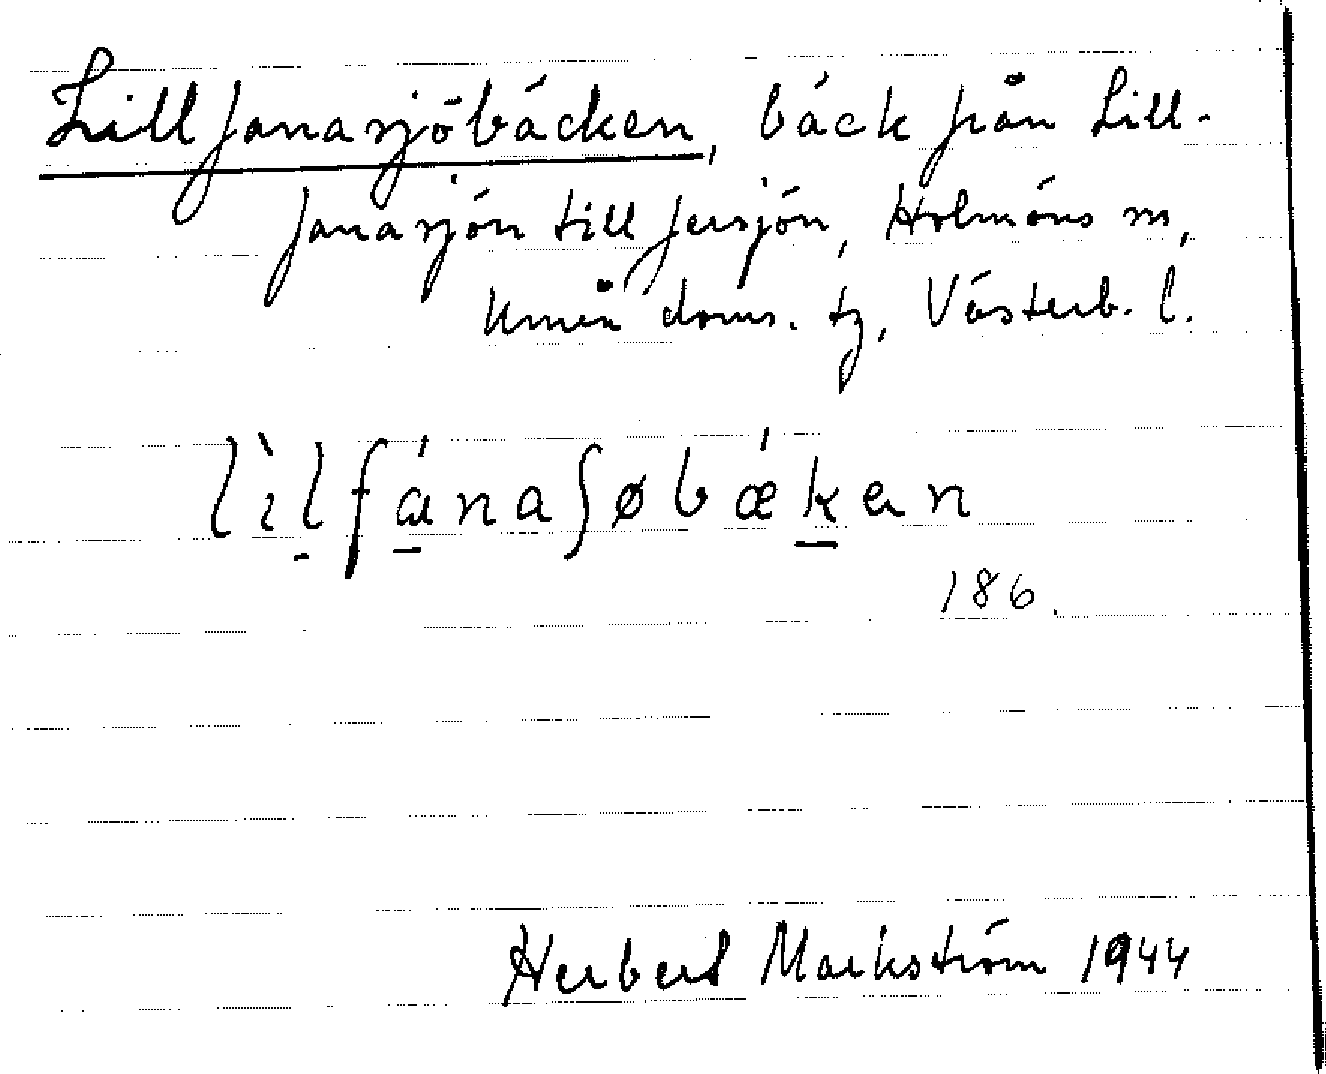 Lillfanasjöbäcken, bäck från Lill-
fanasjön till fersjön, Holmöns sn,
Umeå doms. tg, Västerb. l.
lìl̠fá̱naʃøbǽḵen
186.
Herbert Markström 1944